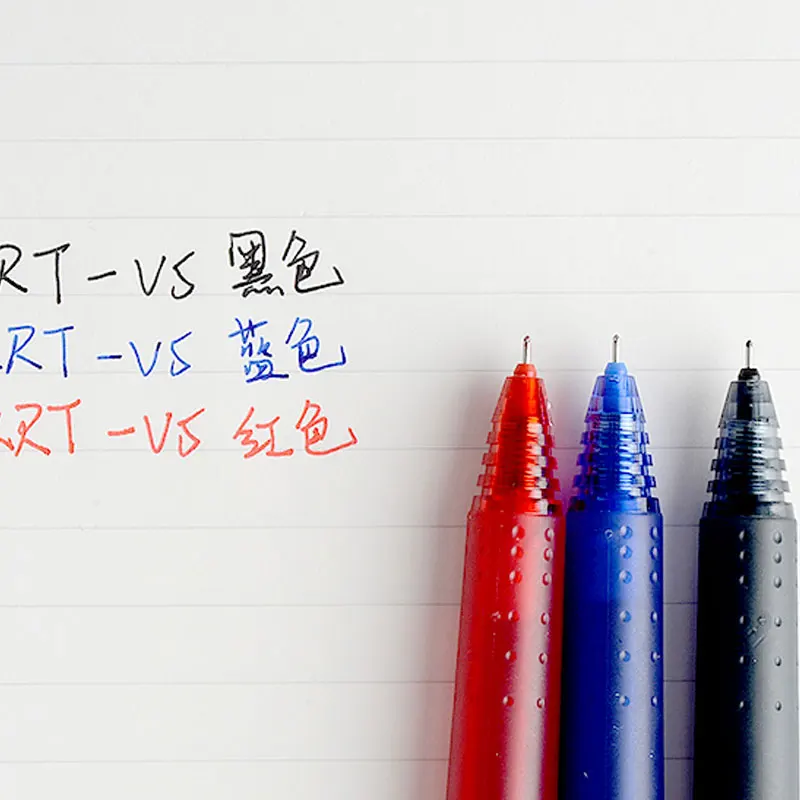 RT-V5 黑色
RT-V5 蓝色
RT-V5 红色